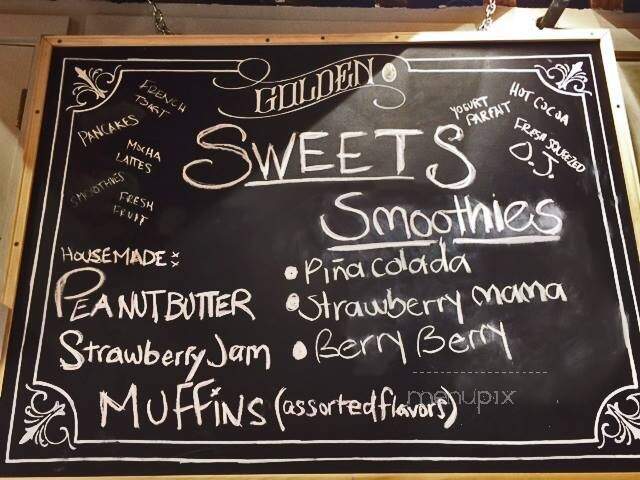 GOLDEN
FRENCH
TOAST
PANCAKES
MOCHA
LATTES
SMOOTHIES
FRESH
FRUIT
YOGURT
PARFAIT
HOT COCOA
FRESH SQUEEZED
O.J.
SWEETS
Smoothies
HOUSEMADE:
PEANUT BUTTER
Strawberry Jam
• Piña colada
• Strawberry mama
• Berry Berry
MUFFiNS (assorted flavors)
menupix